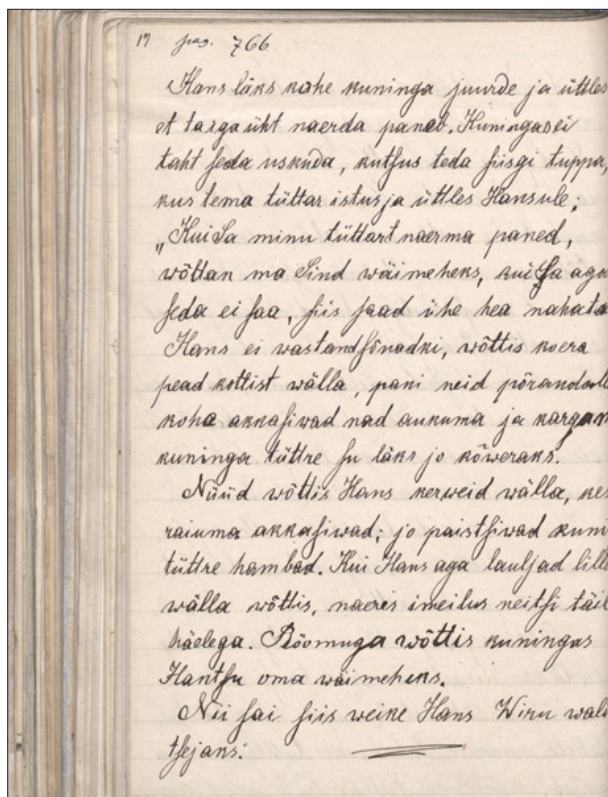 17 pag. 766
Hans läks kohe kuninga juurde ja üttles
et ta iga üht naerda paneb. Kuningas ei
taht seda uskuda, kutsus teda siisgi tuppa,
kus tema tüttar istus ja üttles Hansule:
„Kui Sa minu tüttart naerma paned,
wõttan ma Sind wäimeheks, kui Sa aga
seda ei saa, siis saad ühe hea nahata
Hans ei wastand sõnadki, wõttis koera
pead kottist wälla, pani neid põrandall
koha akkasiwad nad aukuma ja kargam
kuninga tüttre su läks jo kõweraks.
Nüüd wõttis Hans kerweid wälla, kes
raiuma akkasiwad; jo paistsiwad kuni
tüttre hambad. Kui Hans aga lauljad lill
wälla wõttis, naeris imeilus neitsi täil
häelega. Rõõmuga wõttis kuningas
Hantsu oma wäimeheks.
Nii sai siis weike Hans Wiru wali
tsejans.